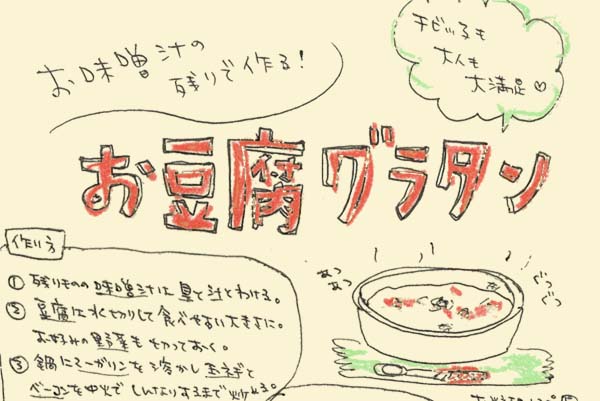 お味噌汁の
残りで作る!
チビッ子も
大人も
大満足♡
お豆腐グラタン
作り方
① 残りものの味噌汁は具と汁とわける。
② 豆腐は水切りして食べやすい大きさに。
お好みの野菜も切っておく。
③ 鍋にマーガリンを溶かし玉ネギと
ベーコンを中火でしんなりするまで炒める。
あつ
あつ
ぐつ
ぐつ